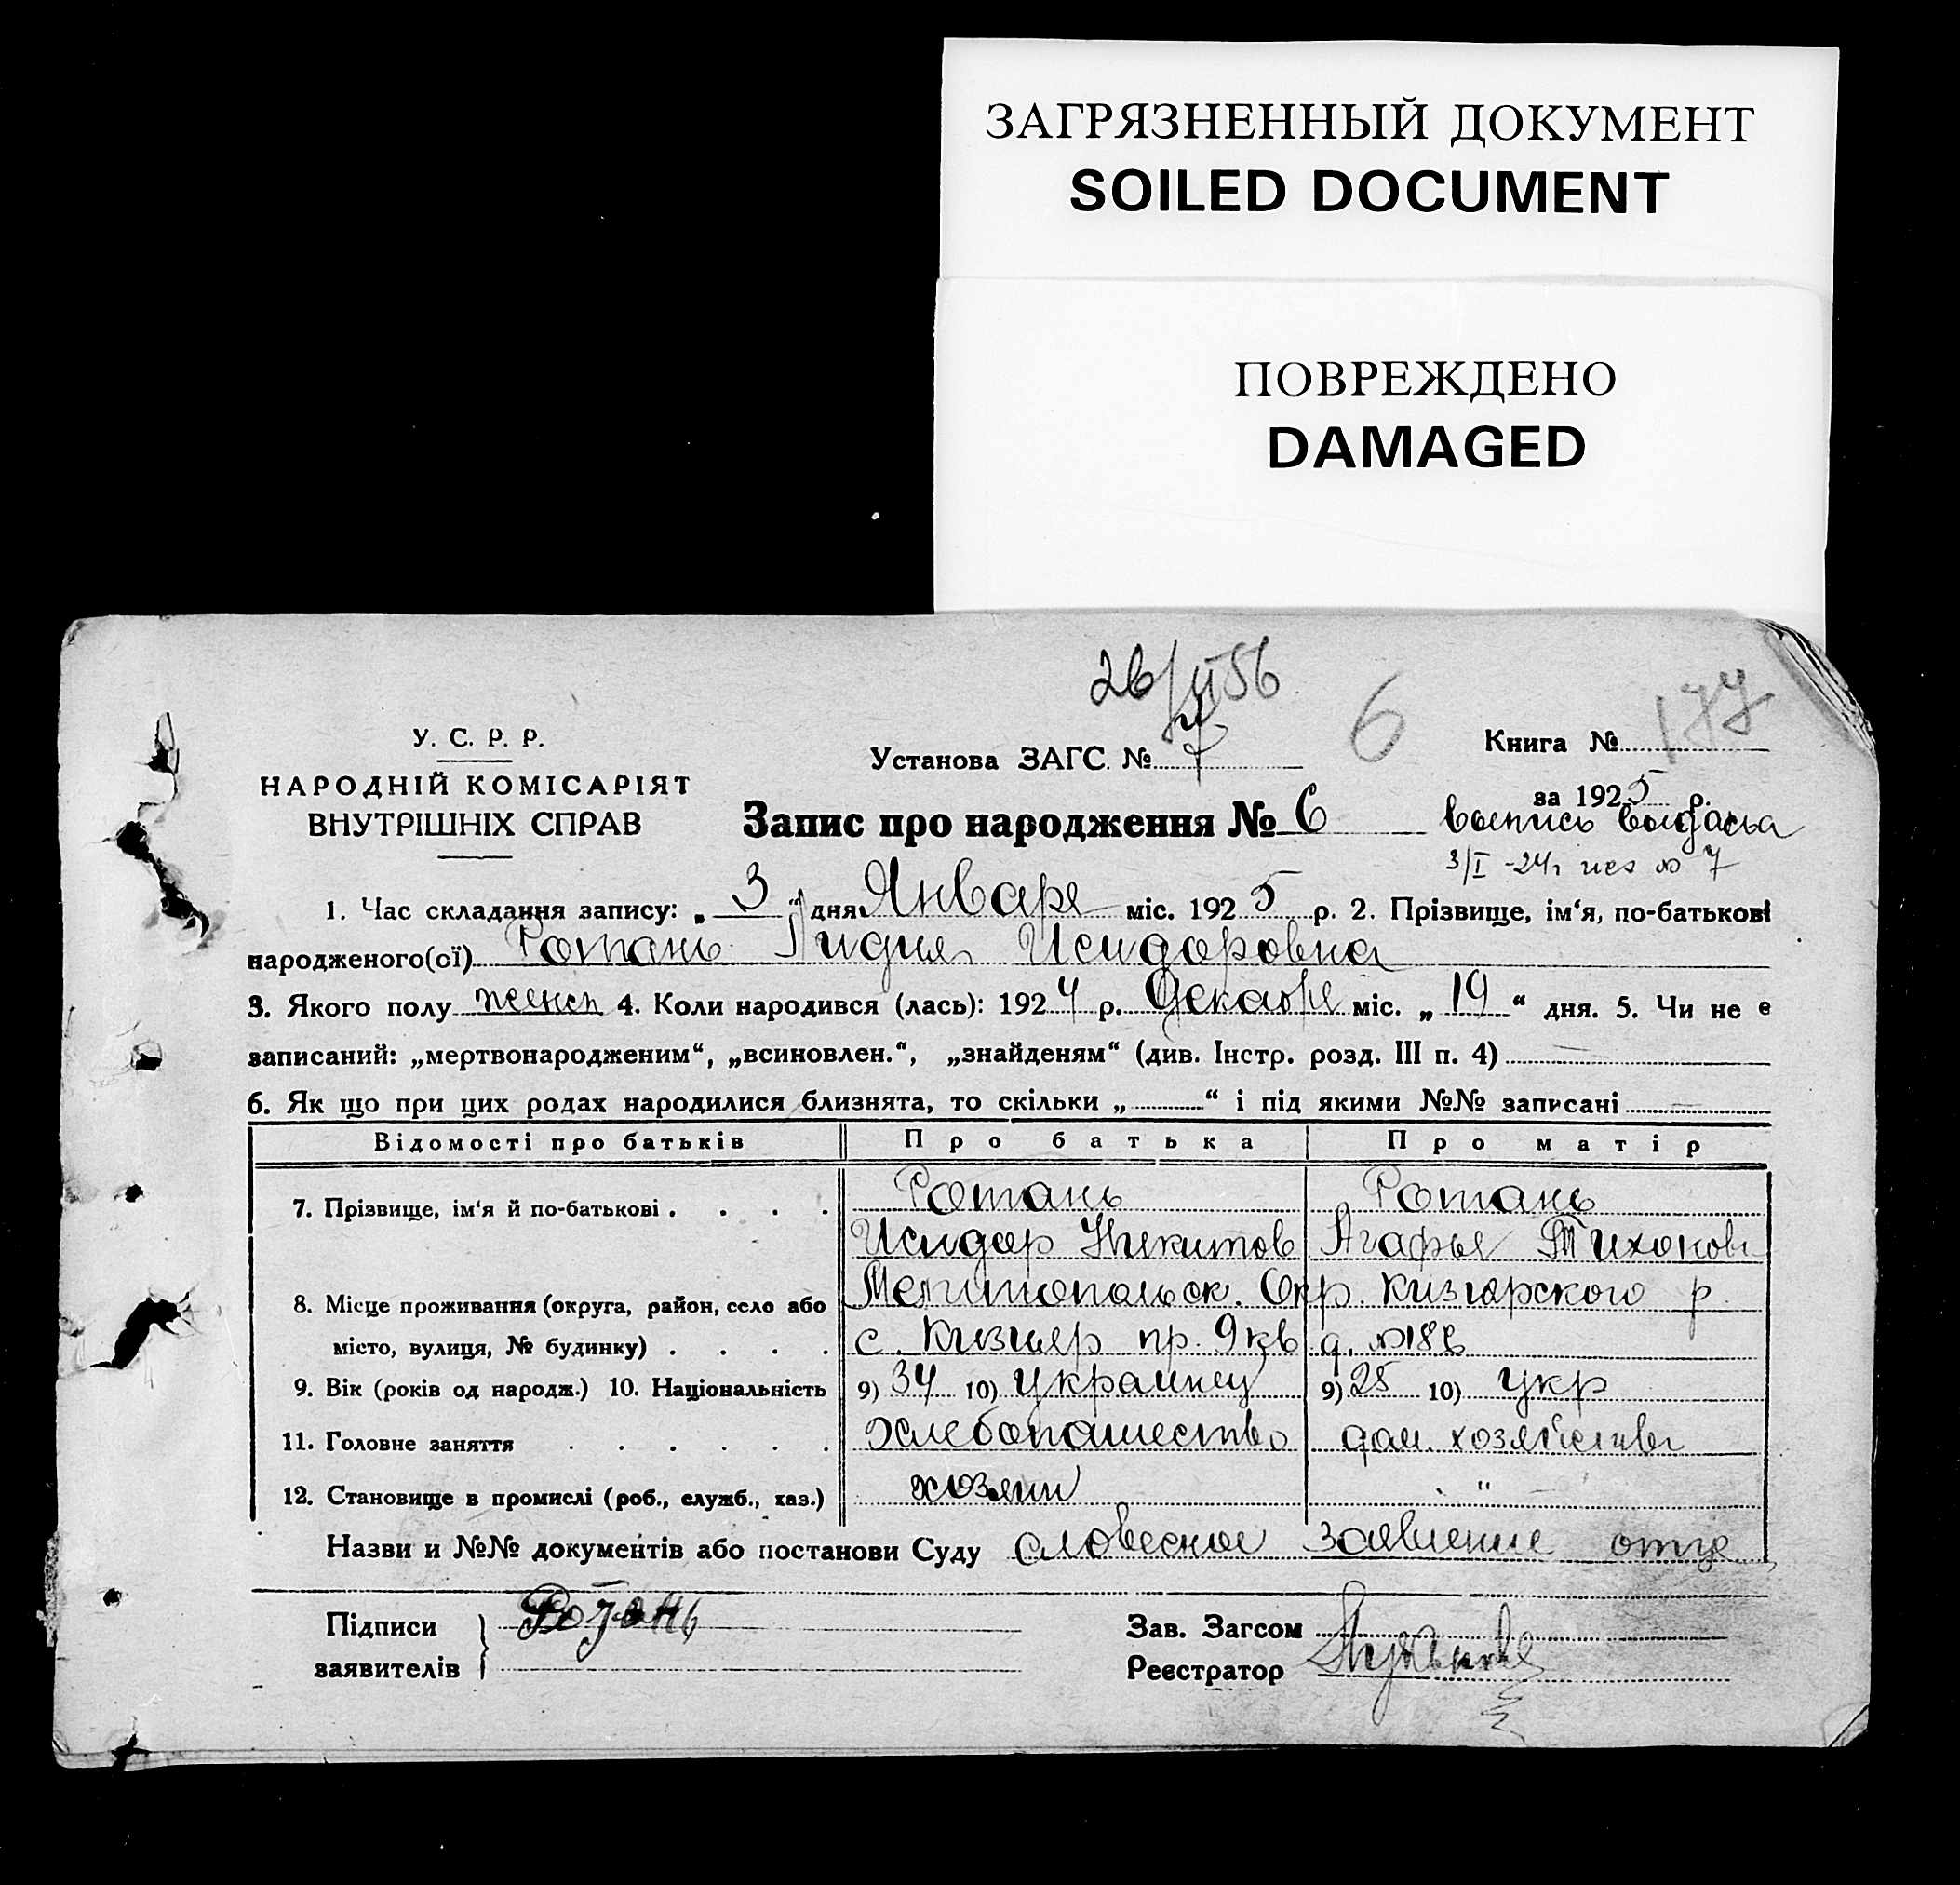 ЗАГРЯЗНЕННЫЙ ДОКУМЕНТ
SOILED DOCUMENT
ПОВРЕЖДЕНО
DAMAGED
6
177
У. С. Р. Р.
НАРОДНІЙ КОМІСАРІЯТ
ВНУТРІШНІХ СПРАВ
Установа ЗАГС. № 7
Книга №
за 1925 р.
Запис про народження № 6
выпись выдана
3/I -24г № 7
1. Час складання запису: „ 3 " дня Января міс. 1925 р. 2. Прізвище, ім'я, по-батькові
народженого(ої) Ротань Лидия Исидоровна
3. Якого полу женск 4. Коли народився (лась): 1924 р. Декабря міс. „ 19 " дня. 5. Чи не є
записаний: „мертвонародженим", „всиновлен.", „знайденям" (див. Інстр. розд. III п. 4)
6. Як що при цих родах народилися близнята, то скільки „ " і під якими №№ записані
Відомості про батьків Про батька Про матір
7. Прізвище, ім'я й по-батькові Ротань Ротань
Исидор Никитов Агафья Тихонов
8. Місце проживання (округа, район, село або Мелитопольск. Окр. Кизиярского р.
місто, вулиця, № будинку) с. Кизияр пр. 9 кв д. №
9. Вік (років од народж.) 10. Національність 9) 34 10) Украинец 9) 25 10) Укр
11. Головне заняття Хлебопашество дом. хозяйство
12. Становище в промислі (роб., служб., хаз.) хозяин "
Назви и №№ документів або постанови Суду словесное заявление отца
Підписи Ротань
заявителів
Зав. Загсом
Реєстратор